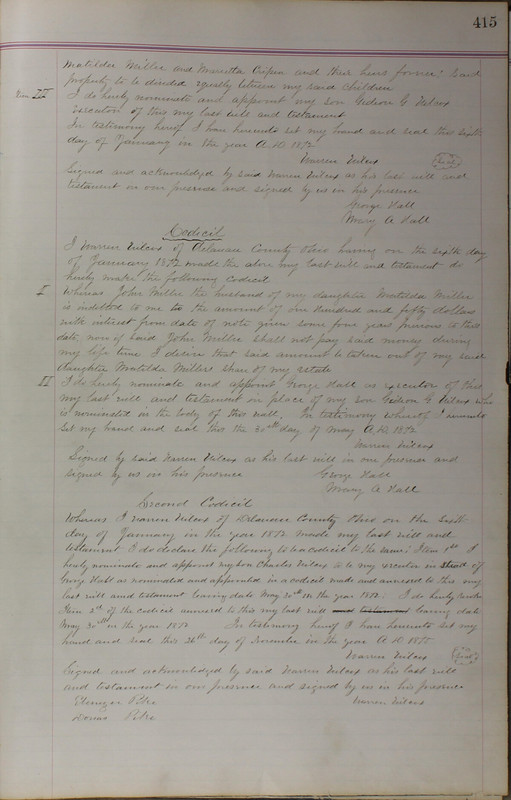 415
Matilda Miller and Marietta Cripen and their heirs forever. Said
property to be divided equally between my said children
Item III I do hereby nominate and appoint my son Gideon G Wilcox
executor of this my last will and testament
In testimony hereof I have hereunto set my hand and seal this sixth
day of January in the year A.D. 1872
Warren Wilcox (Seal)
Signed and acknowledged by said Warren Wilcox as his last will and
testament in our presence and signed by us in his presence
George Hall
Mary A Hall
Codicil
I Warren Wilcox of Delaware County Ohio having on the sixth day
of January 1872 made the above my last will and testament do
hereby make the following codicil
I Whereas John Miller the husband of my daughter Matilda Miller
is indebted to me to the amount of one hundred and fifty dollars
with interest from date of note given some four years previous to this
date, now if said John Miller shall not pay said money during
my life time I desire that said amount be taken out of my said
daughter Matilda Millers share of my estate
II I do hereby nominate and appoint George Hall as executor of this
my last will and testament in place of my son Gideon G Wilcox who
is nominated in the body of this will. In testimony whereof I hereunto
set my hand and seal this the 30th day of May A.D. 1872
Warren Wilcox
Signed by said Warren Wilcox as his last will in our presence and
signed by us in his presence George Hall
Mary A Hall
Second Codicil
Whereas I Warren Wilcox of Delaware County Ohio on the sixth
day of January in the year 1872 made my last will and
testament I do declare the following to be a codicil to the same: Item 1st I
hereby nominate and appoint my son Charles Wilcox to be my executor in stead of
George Hall as nominated and appointed in a codicil made and annexed to this my
last will and testament bearing date May 30th in the year 1872: I do hereby revoke
Item 2d of the codicil annexed to this my last will and testament bearing date
May 30th in the year 1872 In testimony hereof I have hereunto set my
hand and seal this 26th day of November in the year A.D.
Warren Wilcox (Seal)
Signed and acknowledged by said Warren Wilcox as his last will
and testament in our presence and signed by us in his presence
Ebenezer Warren Wilcox